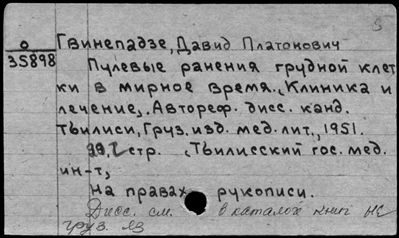 О
35898
Гвинепадзе, Давид Платонович
Пулевые ранения грудной клет
ки в мирное время. (Клиника и
лечение). Автореф. дисс. канд.
Тбилиси, Груз. изд. мед. лит., 1951.
стр. (Тбилисский гос. мед.
ин-т)
На правах рукописи.
Дисс. см. в каталоге книг на
груз. яз